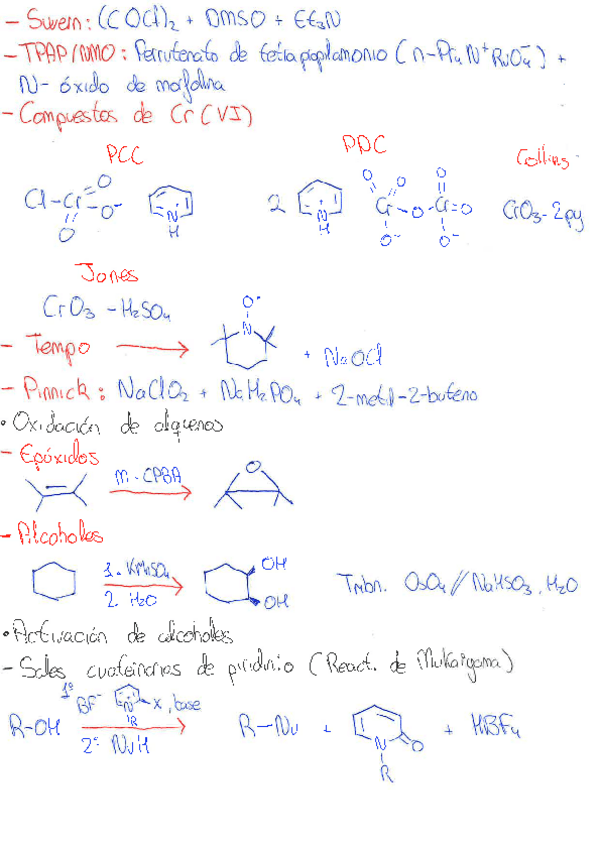 - Swern: (COCl)2 + DMSO + Et3N
- TPAP/NMO: Perrutenato de tetrapropilamonio (n-Pr4N+RuO4-) +
N-óxido de morfolina
- Compuestos de Cr(VI)
PCC PDC Collins
Cl-Cr O O- O N H 2 N H O O Cr-O-Cr=O O O- O- CrO3-2py
Jones
CrO3 - H2SO4
- Tempo O• N + NaOCl
- Pinnick: NaClO2 + NaH2PO4 + 2-metil-2-buteno
• Oxidación de alquenos
- Epóxidos
m-CPBA O
- Alcoholes
1.- KMnSO4 OH Tmbn. OsO4//NaHSO3, H2O
2. H2O OH
• Activación de alcoholes
- Sales cuaternarias de piridinio (React. de Mukaigama)
1º BF- N R X, base
R-OH R-Nu + N O R + HBF4
2º: NuH